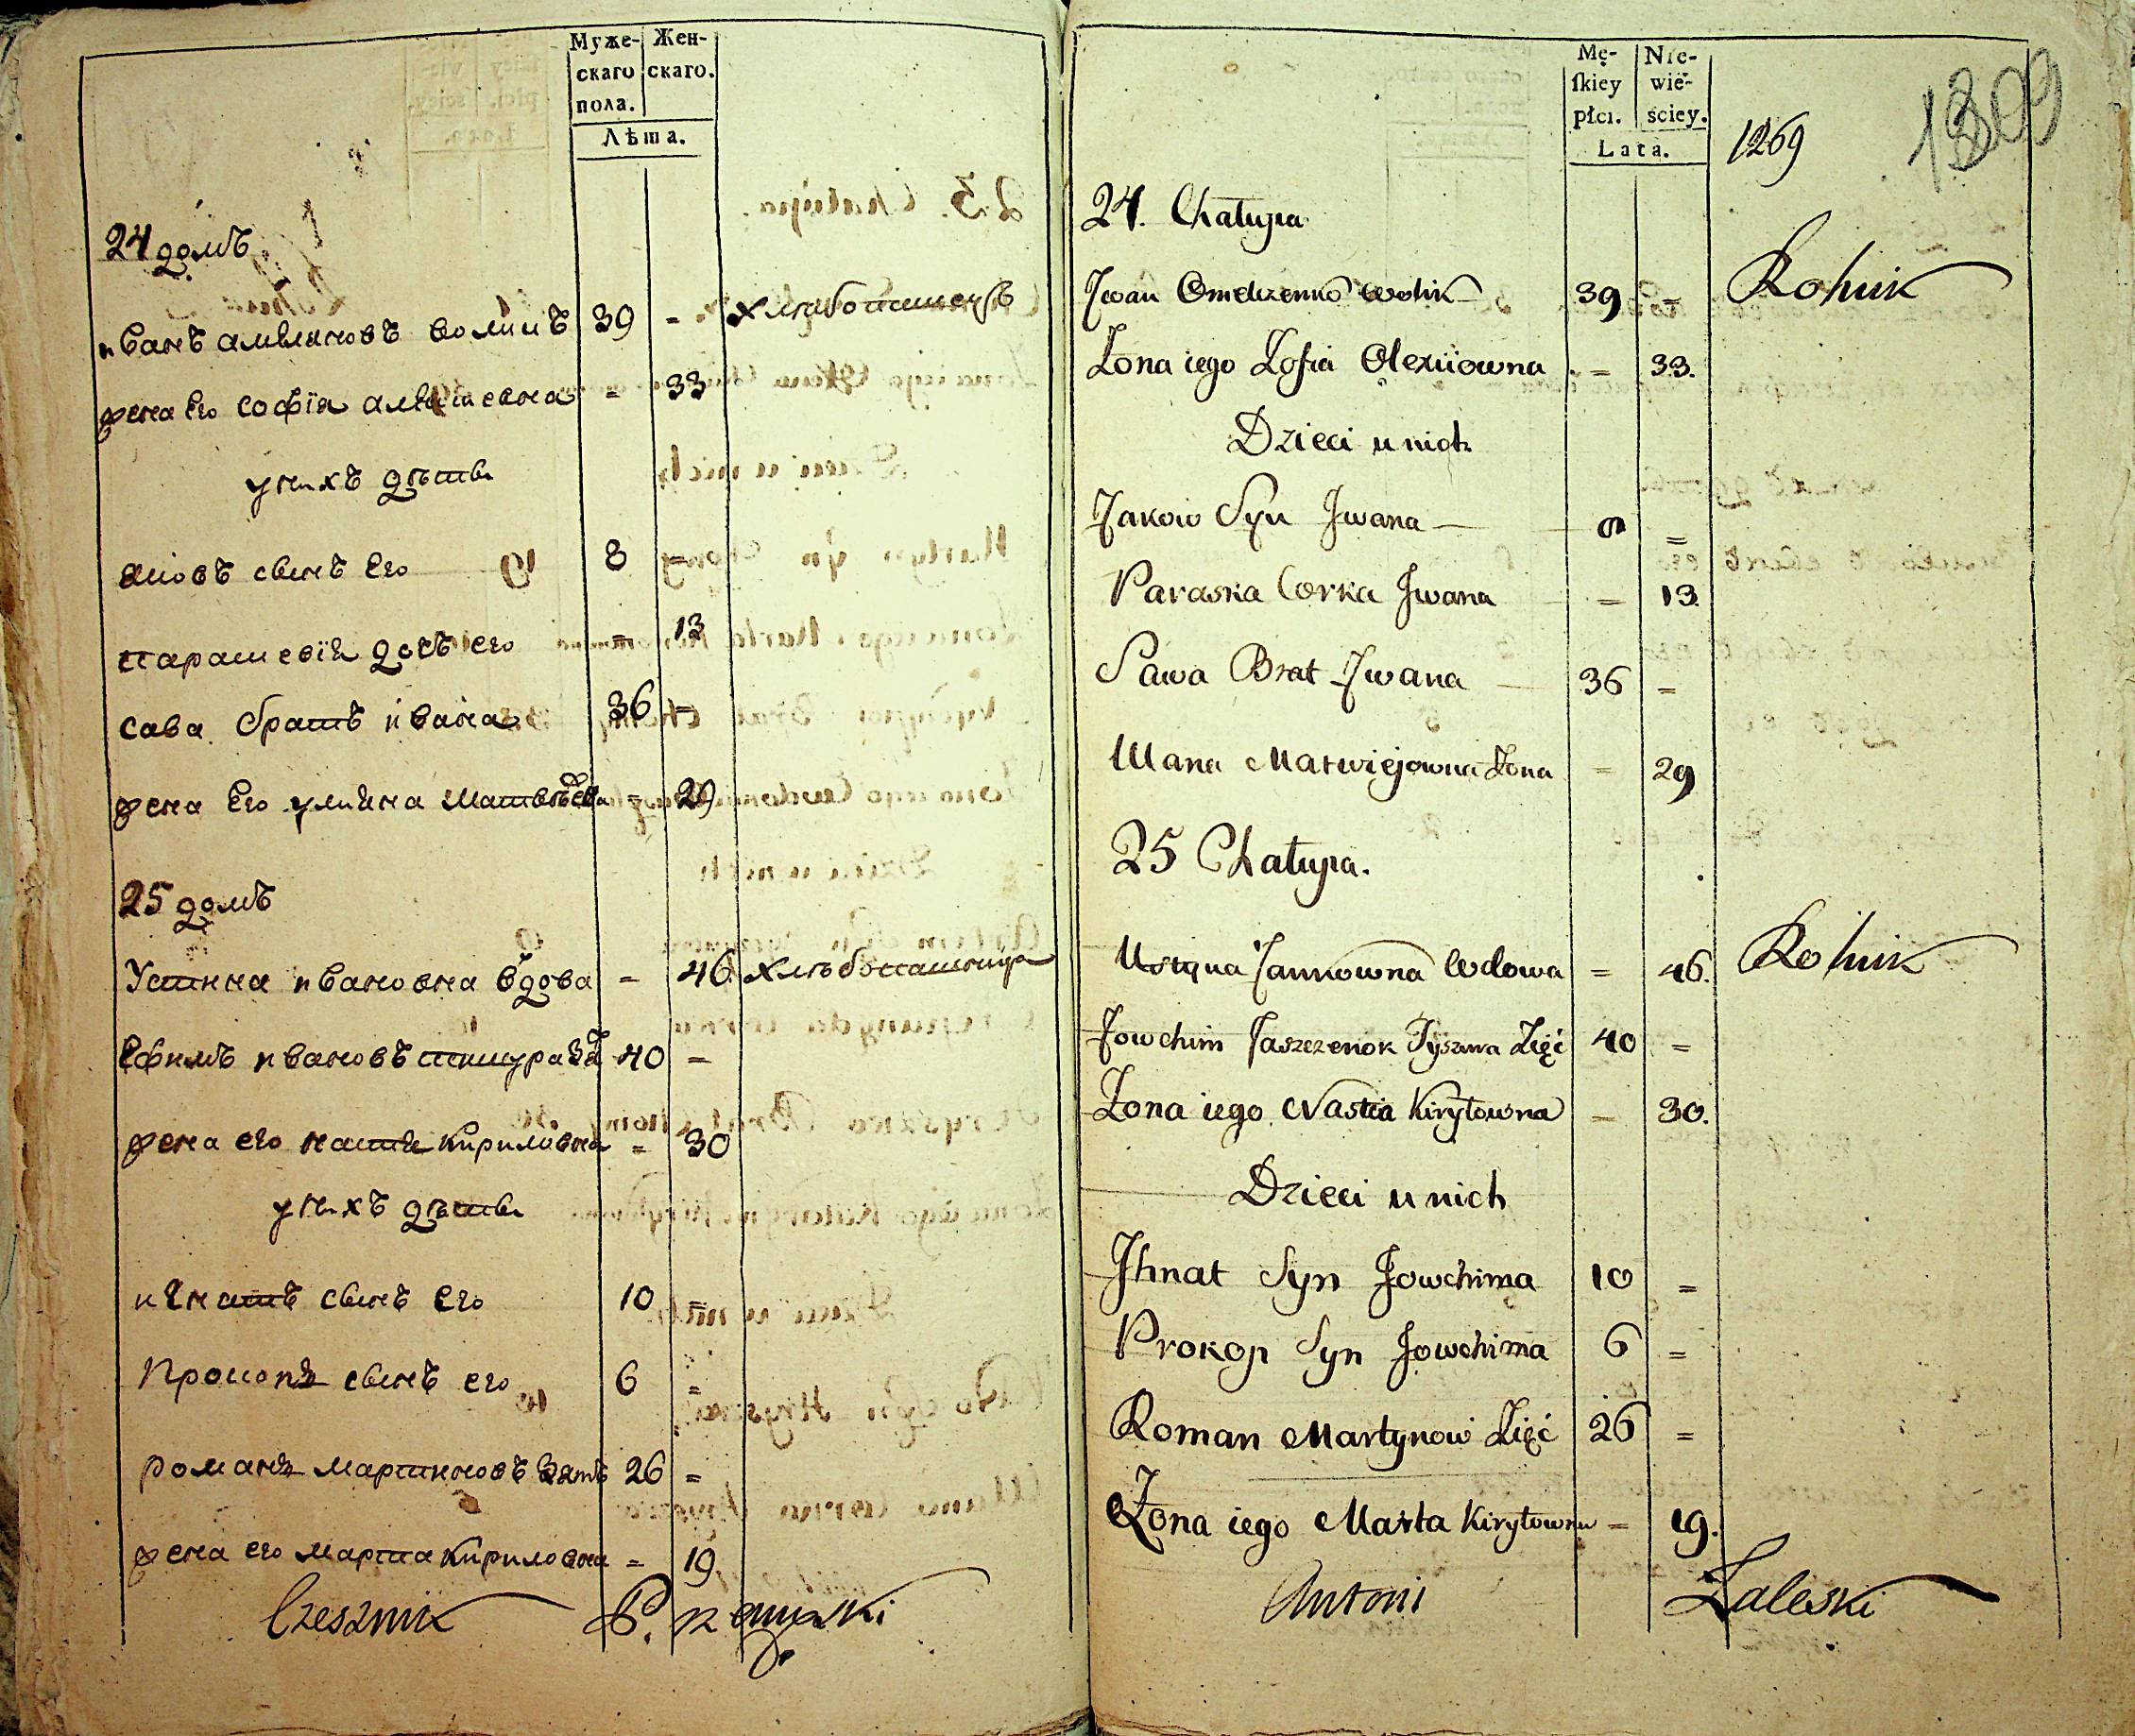 Муже- Жен-
скаго скаго.
пола.
Лѣта.
24 домъ
иванъ амельяновъ волинъ 39 = хлѣбопашецъ
жена его софїя алексѣевна = 33
у нихъ дѣти
яковъ сынъ его 8 =
парасковїя дочь его = 13
сава братъ ивана 36 =
жена его улияна матвѣева = 29
25 домъ
Устина ивановна вдова = 46 хлѣбопашица
Ефимъ ивановъ 40 =
жена его настя кириловна = 30
у нихъ дѣти
игнатъ сынъ его 10 =
Прокопъ сынъ его 6 =
романъ мартиновъ зять 26 =
жена его марта кириловна = 19
Czesznik
Mę- Nie-
ſkiey wie-
płci. ściey.
Lata.
1269
1309
24. Chałupa
Jwan Omelczenko Wolik 39 = Rolnik
Zona iego Zofia Olexiiowna = 33.
Dzieci u nich
Jakow Syn Jwana 8 =
Paraska Corka Jwana = 13.
Sawa Brat Jwana 36 =
Ulana Matwiejowna Zona = 29
25 Chałupa.
Ustyna Jankowna Wdowa = 46. Rolnik
Jowchim Jaszczenok Zięć 40 =
Zona iego Nastia Kiryłowna = 30.
Dzieci u nich
Jhnat Syn Jowchima 10 =
Prokop Syn Jowchima 6 =
Roman Martynow Zięć 26 =
Zona iego Marta Kiryłowna = 19.
Antoni Zaleski